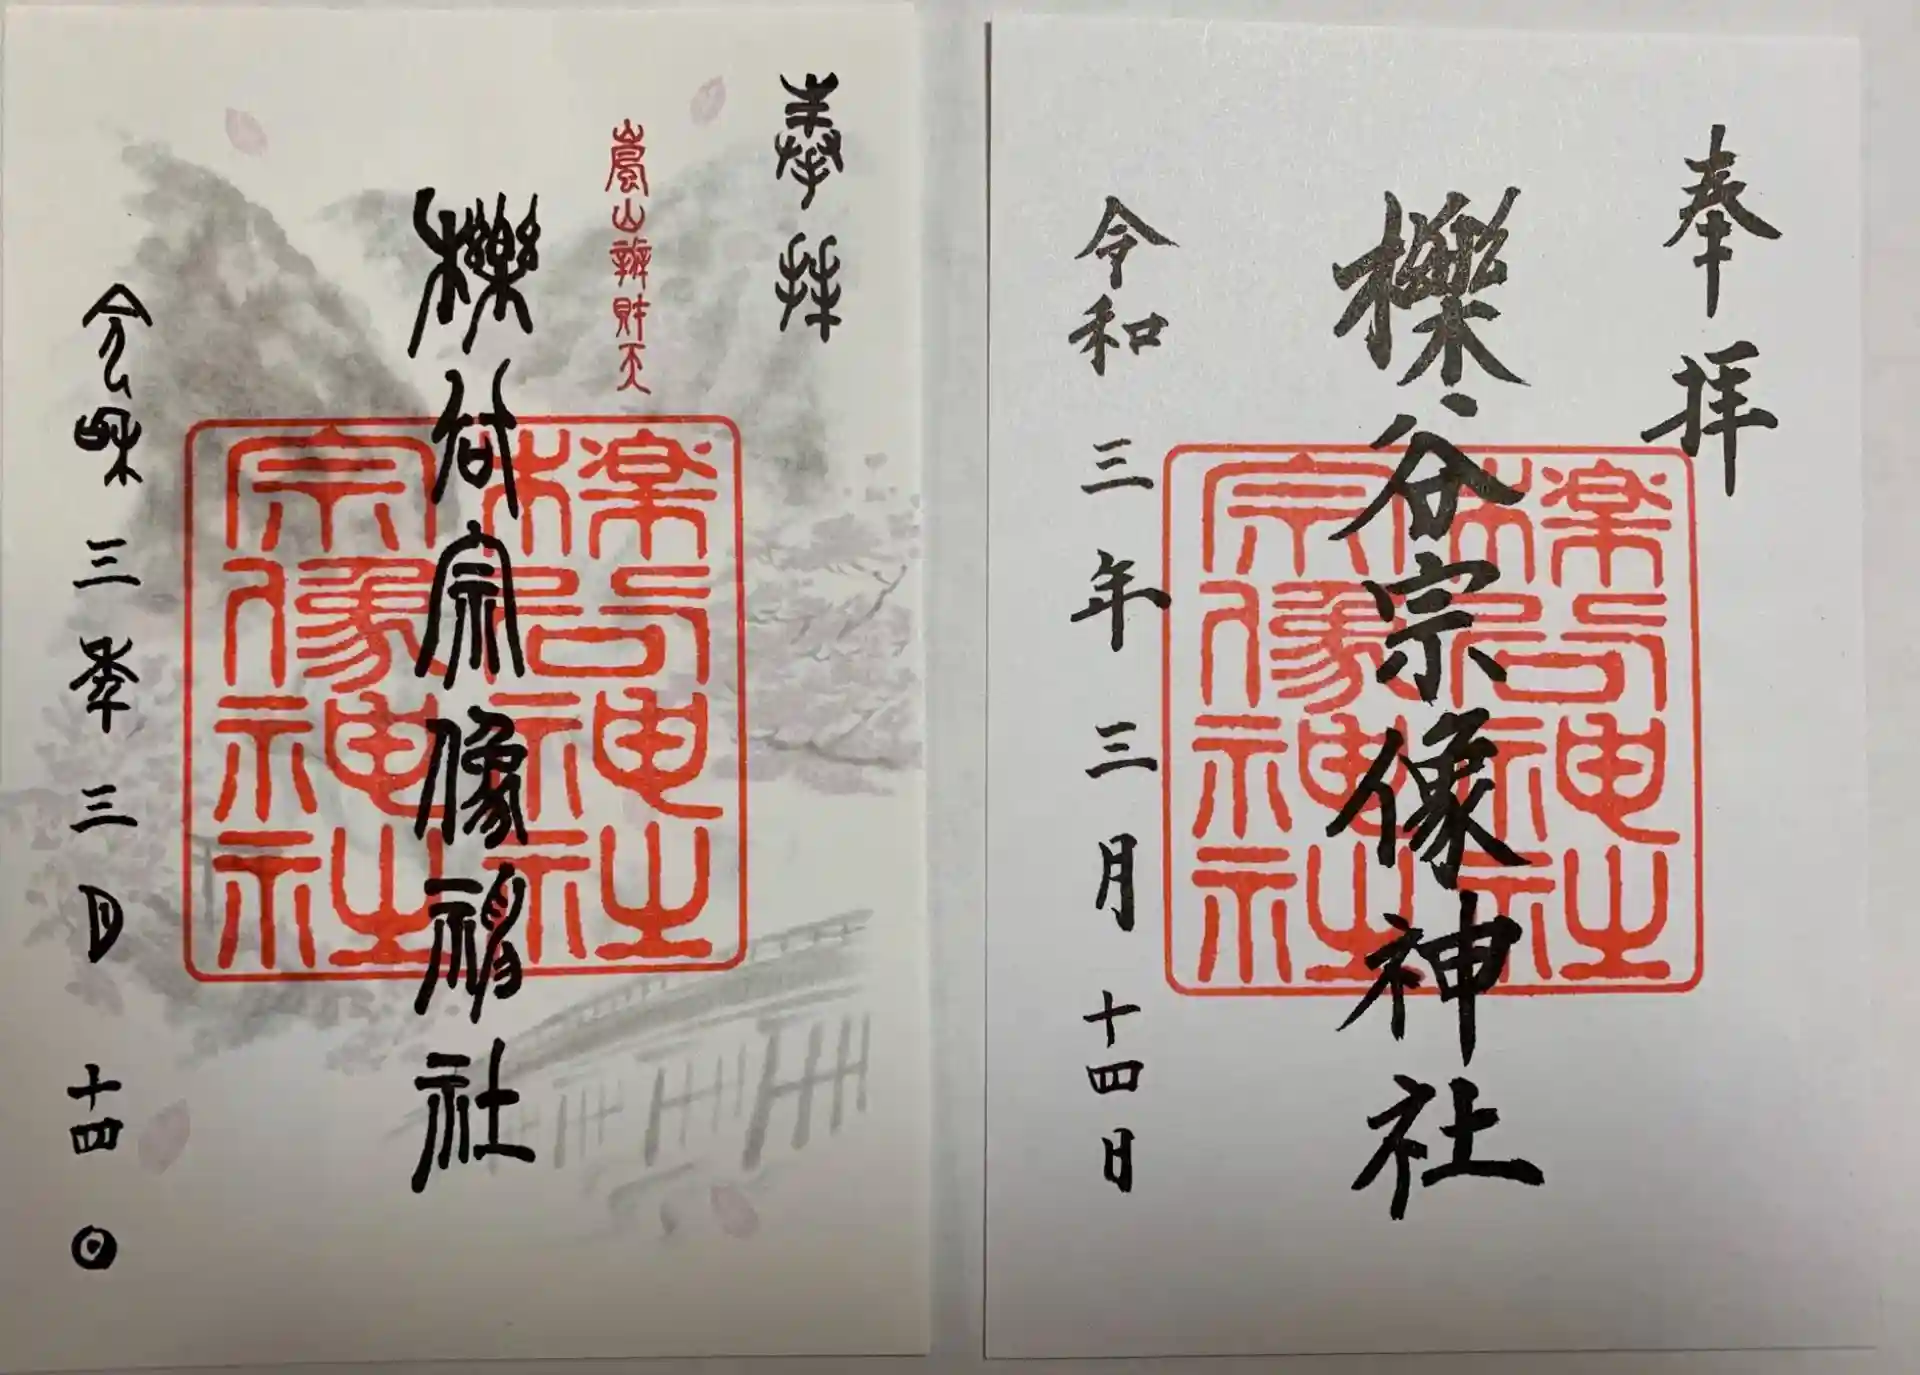 奉拝
嵐山辨財天
櫟谷宗像神社
櫟谷神社
宗像神社
令和三年三月十四日
奉拝
櫟谷宗像神社
櫟谷神社
宗像神社
令和三年三月十四日